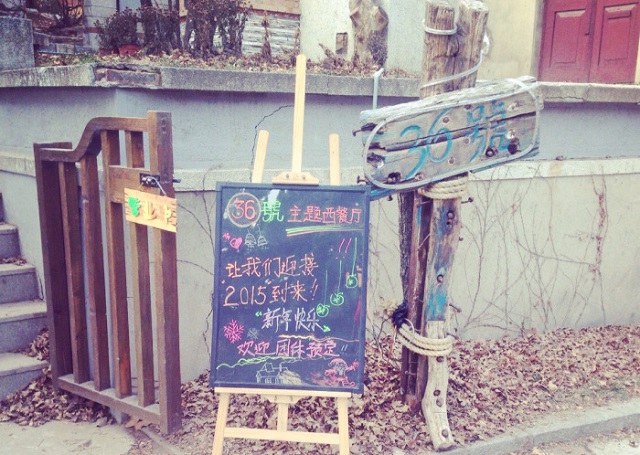 36號
36號 主题西餐厅
让我们迎接
"2015"到来!!
"新年快乐"
欢迎团体预定"